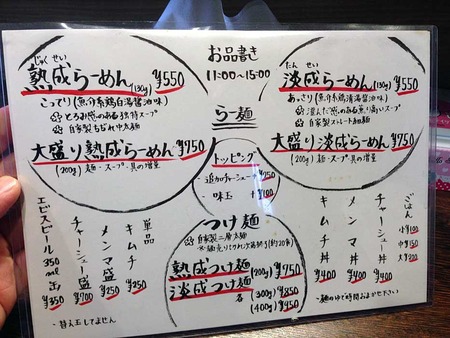 お品書き
11:00〜15:00
じゅくせい
熟成らーめん(130g) ¥550
こってり(魚介系鶏白湯醤油味)
とろみ感のある独特スープ
自家製ちぢれ中太麺
大盛り熟成らーめん ¥750
(200g) 麺・スープ・具の増量
たんせい
淡成らーめん(130g) ¥550
あっさり(魚介系鶏清湯醤油味)
澄んだ感のある香り高いスープ
自家製ストレート細麺
大盛り淡成らーめん ¥750
(200g) 麺・スープ・具の増量
らー麺
トッピング
・追加チャーシュー ¥250
・味玉 ¥100
つけ麺
自家製二層太麺
熟成つけ麺 (200g) ¥750
淡成つけ麺 各 (300g) ¥850
(400g) ¥950
単品
キムチ ¥250
メンマ盛 ¥250
チャーシュー盛 ¥700
エビスビール 350ml缶 ¥350
・替え玉してません
ごはん 小¥100 中¥150 大¥200
チャーシュー丼 ¥400
メンマ丼 ¥400
キムチ丼 ¥400
・麺のゆで時間おまかせ下さい